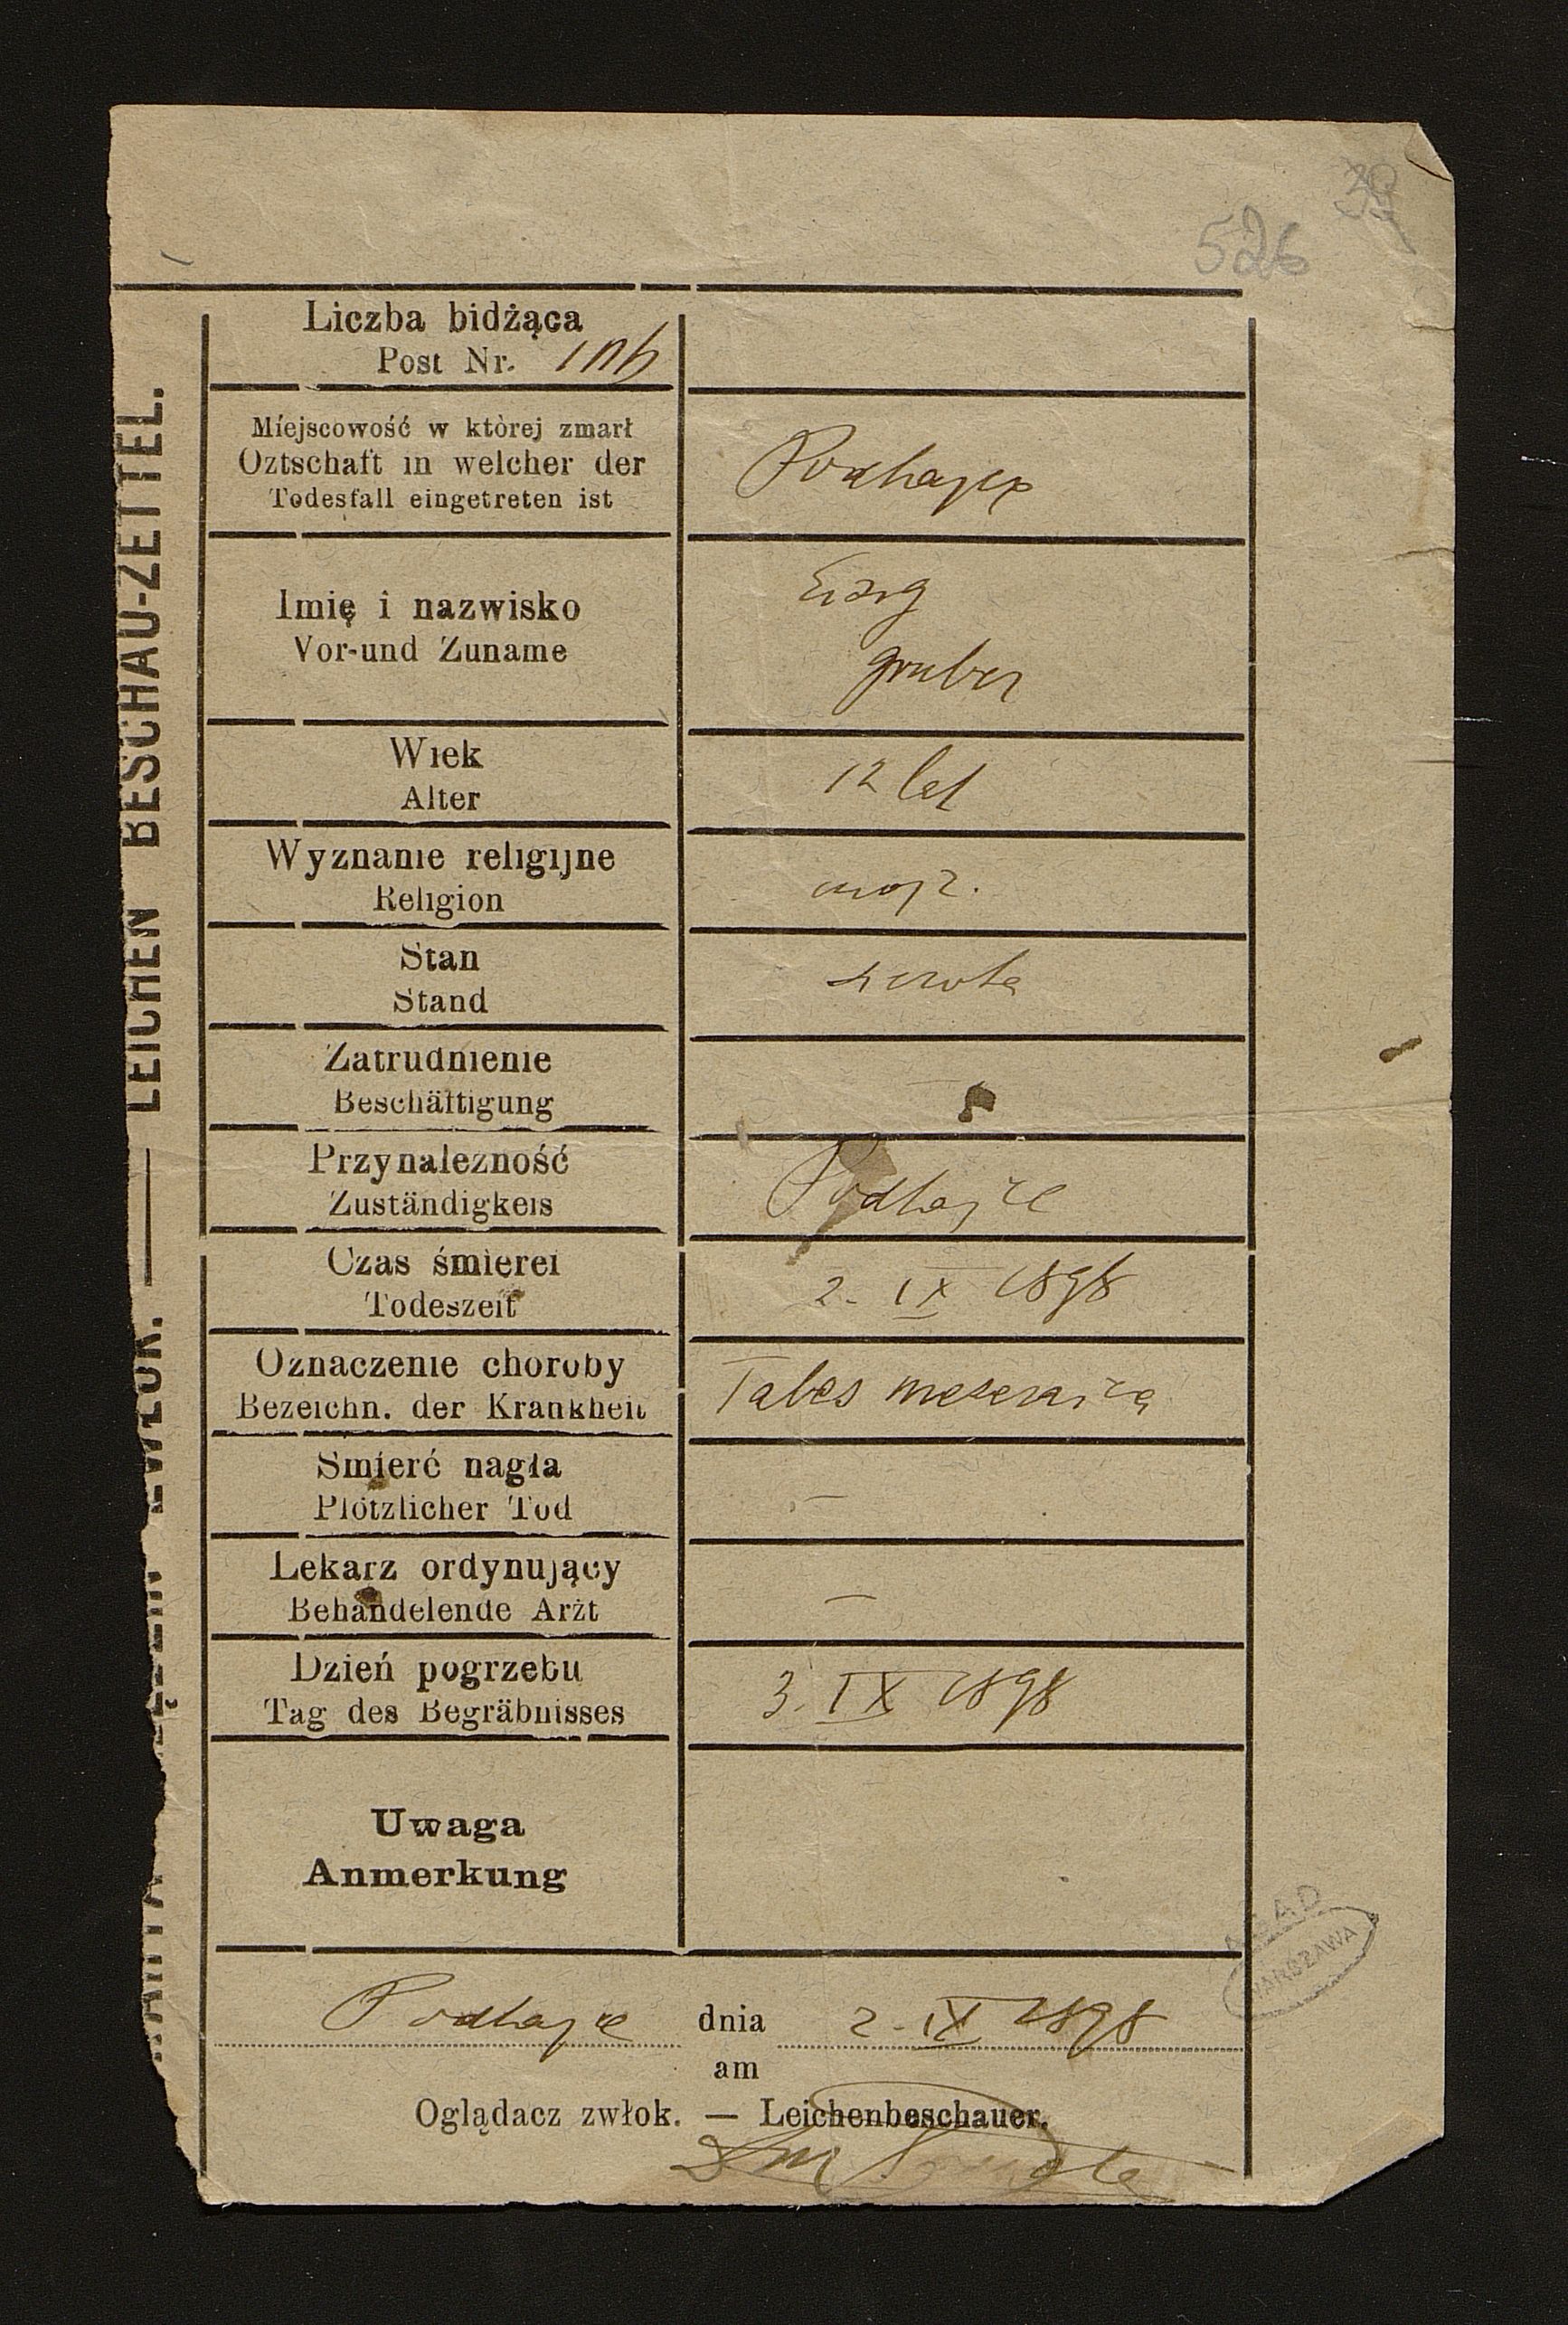 39
526
LEICHEN BESCHAU-ZETTEL.
Liczba bidżąca
Post Nr.
Miejscowość w ktòrej zmarł
Oztschaft in welcher der
Todesfall eingetreten ist
Podhajce
Imię i nazwisko
Vor-und Zuname
Gruber
Wiek
Alter
12 lat
Wyznanie religijne
Religion
mojż.
Stan
Stand
sierota
Zatrudnienie
Beschäftigung
Przynalezność
Zuständigkeis
Podhajce
Czas śmierei
Todeszeit
2. IX 1898
Oznaczenie choroby
Bezeichn. der Krankheit
Tabes meseraica
Smierć nagła
Plötzlicher Tod
—
Lekarz ordynujący
Behandelende Arzt
—
Dzień pogrzebu
Tag des Begräbnisses
3. IX 1898
Uwaga
Anmerkung
AGAD
WARSZAWA
Podhajce dnia 2. IX 1898
am
Oglądacz zwłok. — Leichenbeschauer.